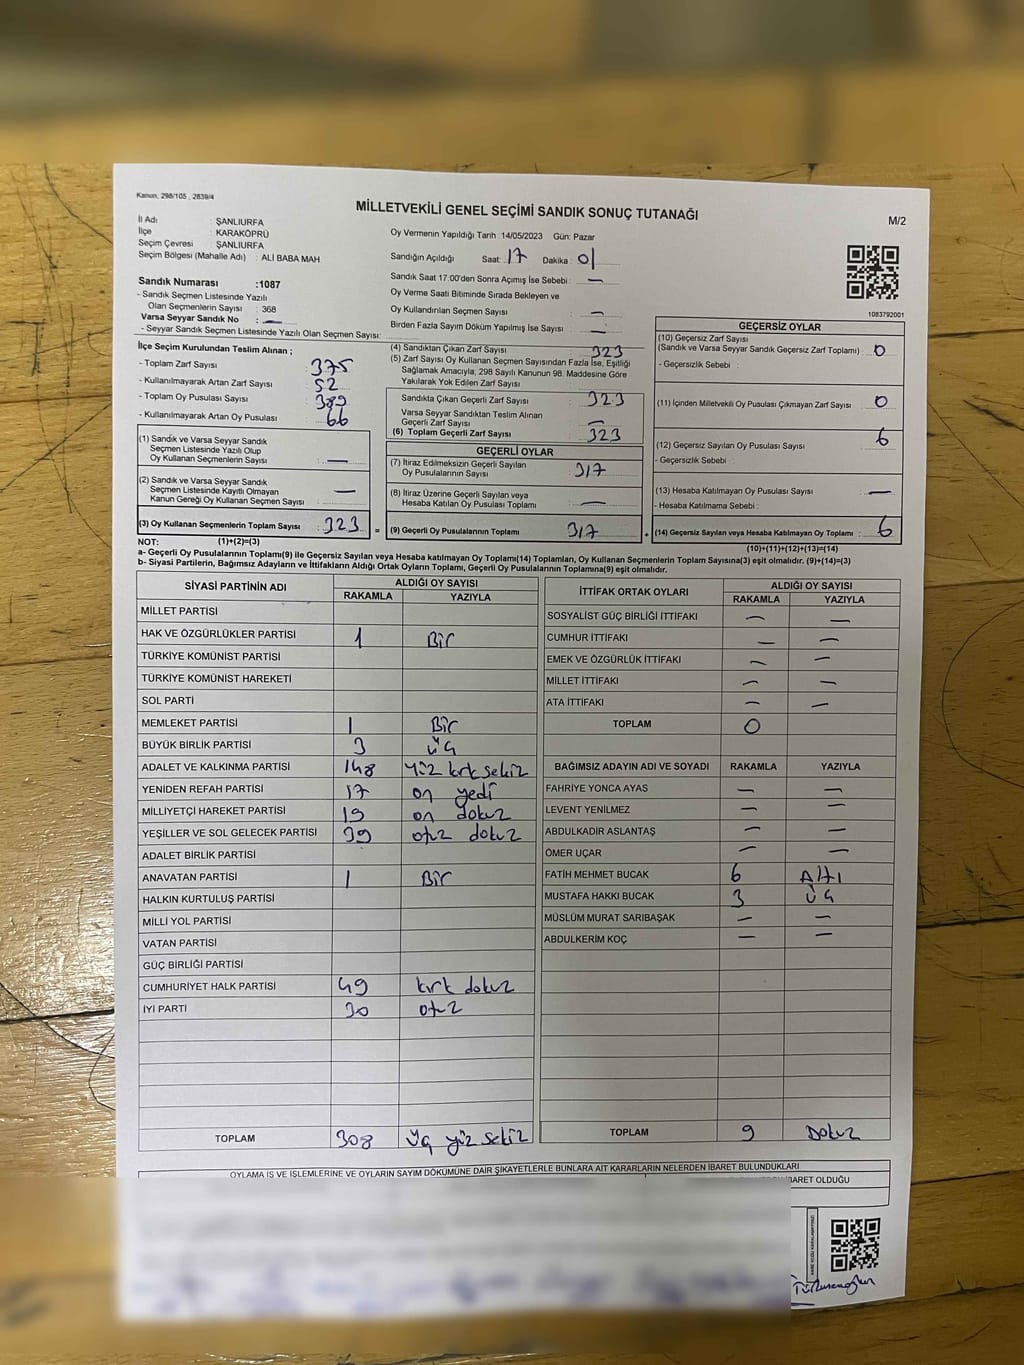 Kanun, 298/105 , 2839/4
MİLLETVEKİLİ GENEL SEÇİMİ SANDIK SONUÇ TUTANAĞI
M/2
İl Adı : ŞANLIURFA
İlçe : KARAKÖPRÜ
Seçim Çevresi : ŞANLIURFA
Seçim Bölgesi (Mahalle Adı) : ALİ BABA MAH.
Oy Vermenin Yapıldığı Tarih :14/05/2023 Gün: Pazar
Sandığın Açıldığı Saat: 17 Dakika : 01
Sandık Saat 17:00'den Sonra Açımış İse Sebebi : —
Oy Verme Saati Bitiminde Sırada Bekleyen ve
Oy Kullandırılan Seçmen Sayısı : —
Birden Fazla Sayım Döküm Yapılmış İse Sayısı : —
Sandık Numarası :1087
- Sandık Seçmen Listesinde Yazılı
Olan Seçmenlerin Sayısı : 368
Varsa Seyyar Sandık No : —
- Seyyar Sandık Seçmen Listesinde Yazılı Olan Seçmen Sayısı:
1083792001
İlçe Seçim Kurulundan Teslim Alınan ;
- Toplam Zarf Sayısı : 375
- Kullanılmayarak Artan Zarf Sayısı : 52
- Toplam Oy Pusulası Sayısı : 389
- Kullanılmayarak Artan Oy Pusulası : 66
(1) Sandık ve Varsa Seyyar Sandık
Seçmen Listesinde Yazılı Olup
Oy Kullanan Seçmenlerin Sayısı : —
(2) Sandık ve Varsa Seyyar Sandık
Seçmen Listesinde Kayıtlı Olmayan
Kanun Gereği Oy Kullanan Seçmen Sayısı : —
(3) Oy Kullanan Seçmenlerin Toplam Sayısı : 323 =
(4) Sandıktan Çıkan Zarf Sayısı : 323
(5) Zarf Sayısı Oy Kullanan Seçmen Sayısından Fazla İse, Eşitliği
Sağlamak Amacıyla, 298 Sayılı Kanunun 98. Maddesine Göre
Yakılarak Yok Edilen Zarf Sayısı :
Sandıkta Çıkan Geçerli Zarf Sayısı : 323
Varsa Seyyar Sandıktan Teslim Alınan
Geçerli Zarf Sayısı : —
(6) Toplam Geçerli Zarf Sayısı : 323
GEÇERLİ OYLAR
(7) İtiraz Edilmeksizin Geçerli Sayılan
Oy Pusulalarının Sayısı : 317
(8) İtiraz Üzerine Geçerli Sayılan veya
Hesaba Katılan Oy Pusulası Toplamı : —
(9) Geçerli Oy Pusulalarının Toplamı : 317 +
GEÇERSİZ OYLAR
(10) Geçersiz Zarf Sayısı
(Sandık ve Varsa Seyyar Sandık Geçersiz Zarf Toplamı) : 0
- Geçersizlik Sebebi :
(11) İçinden Milletvekili Oy Pusulası Çıkmayan Zarf Sayısı : 0
(12) Geçersiz Sayılan Oy Pusulası Sayısı : 6
- Geçersizlik Sebebi :
(13) Hesaba Katılmayan Oy Pusulası Sayısı : —
- Hesaba Katılmama Sebebi :
(14) Geçersiz Sayılan veya Hesaba Katılmayan Oy Toplamı : 6
NOT: (1)+(2)=(3)
(10)+(11)+(12)+(13)=(14)
a- Geçerli Oy Pusulalarının Toplamı(9) ile Geçersiz Sayılan veya Hesaba katılmayan Oy Toplamı(14) Toplamları, Oy Kullanan Seçmenlerin Toplam Sayısına(3) eşit olmalıdır. (9)+(14)=(3)
b- Siyasi Partilerin, Bağımsız Adayların ve İttifakların Aldığı Ortak Oyların Toplamı, Geçerli Oy Pusulalarının Toplamına(9) eşit olmalıdır.
SİYASİ PARTİNİN ADI ALDIĞI OY SAYISI
RAKAMLA YAZIYLA
MİLLET PARTİSİ
HAK VE ÖZGÜRLÜKLER PARTİSİ 1 Bir
TÜRKİYE KOMÜNİST PARTİSİ
TÜRKİYE KOMÜNİST HAREKETİ
SOL PARTİ
MEMLEKET PARTİSİ 1 Bir
BÜYÜK BİRLİK PARTİSİ 3 üç
ADALET VE KALKINMA PARTİSİ 148 Yüz kırk sekiz
YENİDEN REFAH PARTİSİ 17 on yedi
MİLLİYETÇİ HAREKET PARTİSİ 19 on dokuz
YEŞİLLER VE SOL GELECEK PARTİSİ 39 otuz dokuz
ADALET BİRLİK PARTİSİ
ANAVATAN PARTİSİ 1 Bir
HALKIN KURTULUŞ PARTİSİ
MİLLİ YOL PARTİSİ
VATAN PARTİSİ
GÜÇ BİRLİĞİ PARTİSİ
CUMHURİYET HALK PARTİSİ 49 kırk dokuz
İYİ PARTİ 30 otuz
TOPLAM 308 üç yüz sekiz
İTTİFAK ORTAK OYLARI ALDIĞI OY SAYISI
RAKAMLA YAZIYLA
SOSYALİST GÜÇ BİRLİĞİ İTTİFAKI — —
CUMHUR İTTİFAKI — —
EMEK VE ÖZGÜRLÜK İTTİFAKI — —
MİLLET İTTİFAKI — —
ATA İTTİFAKI — —
TOPLAM 0
BAĞIMSIZ ADAYIN ADI VE SOYADI RAKAMLA YAZIYLA
FAHRİYE YONCA AYAS — —
LEVENT YENİLMEZ — —
ABDULKADİR ASLANTAŞ — —
ÖMER UÇAR — —
FATİH MEHMET BUCAK 6 Altı
MUSTAFA HAKKI BUCAK 3 Üç
MÜSLÜM MURAT SARIBAŞAK — —
ABDULKERİM KOÇ — —
TOPLAM 9 Dokuz
OYLAMA İŞ VE İŞLEMLERİNE VE OYLARIN SAYIM DÖKÜMÜNE DAİR ŞİKAYETLERLE BUNLARA AİT KARARLARIN NELERDEN İBARET BULUNDUKLARI
İBARET OLDUĞU